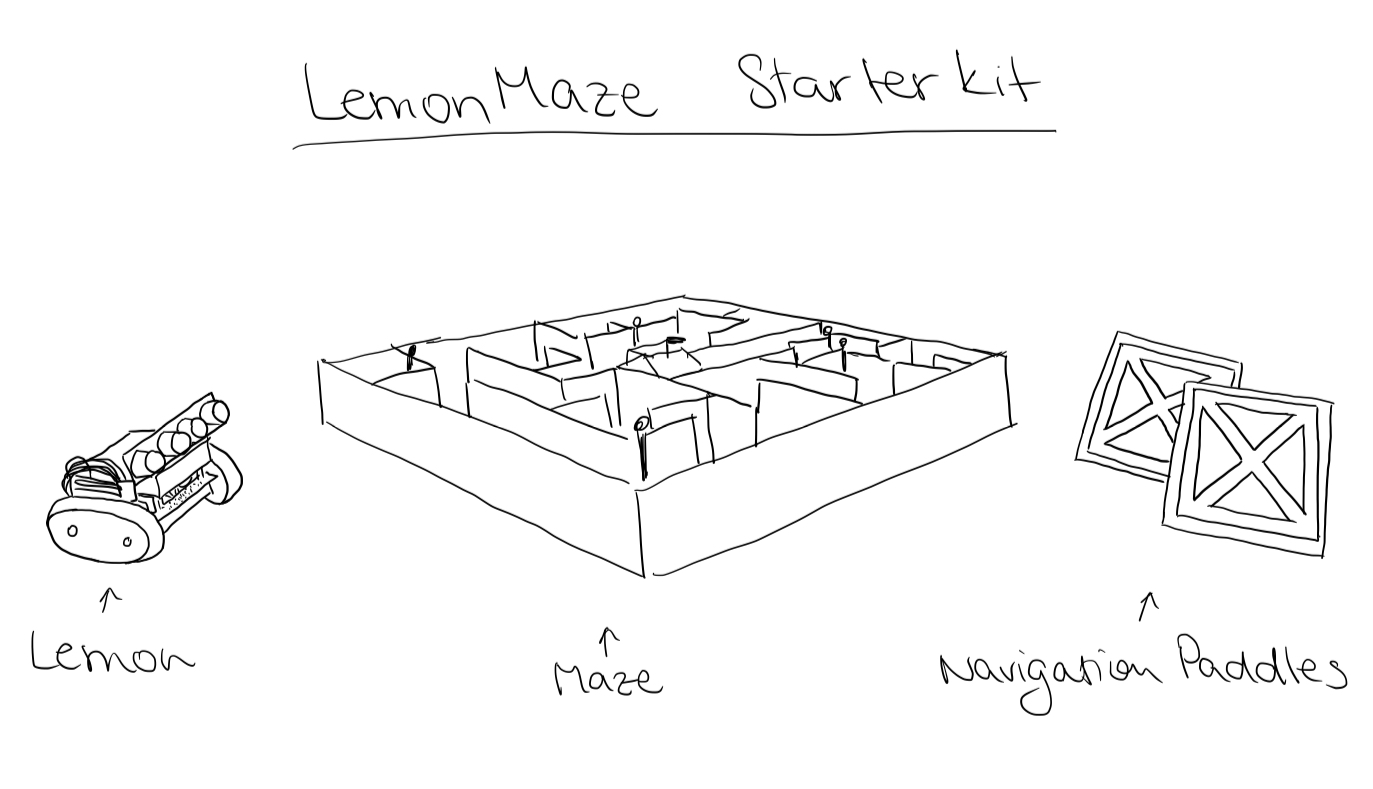 LemonMaze Starter kit
Lemon
Maze
Navigation Paddles